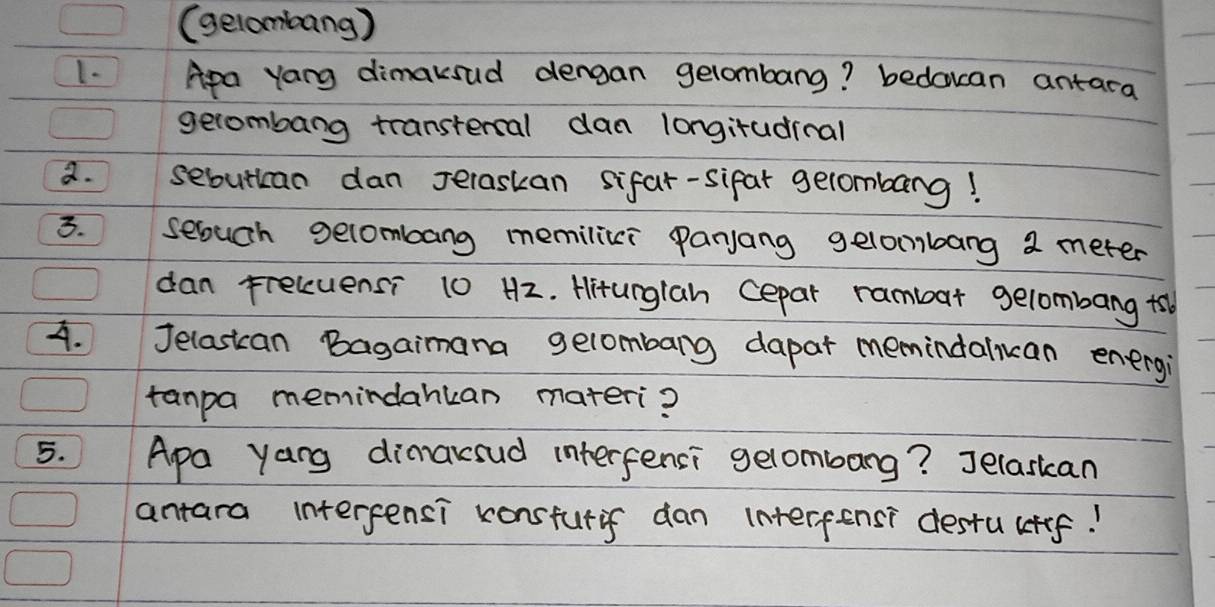 (gelombang)
1. Apa yang dimaksud dengan gelombang? bedakan antara
gelombang transtersal dan longitudinal
2. sebutkan dan Jelaskan sifat-sifat gelombang!
3. sebuah gelombang memiliki panjang gelombang 2 meter
dan Frekuensi 10 Hz. Hitunglah cepat rambat gelombang tsb
4. Jelaskan Bagaimana gelombang dapat memindahkan energi
tanpa memindahkan materi?
5. Apa yang dimaksud interfensi gelombang? Jelaskan
antara interfensi konstutif dan interfensi destuktif!